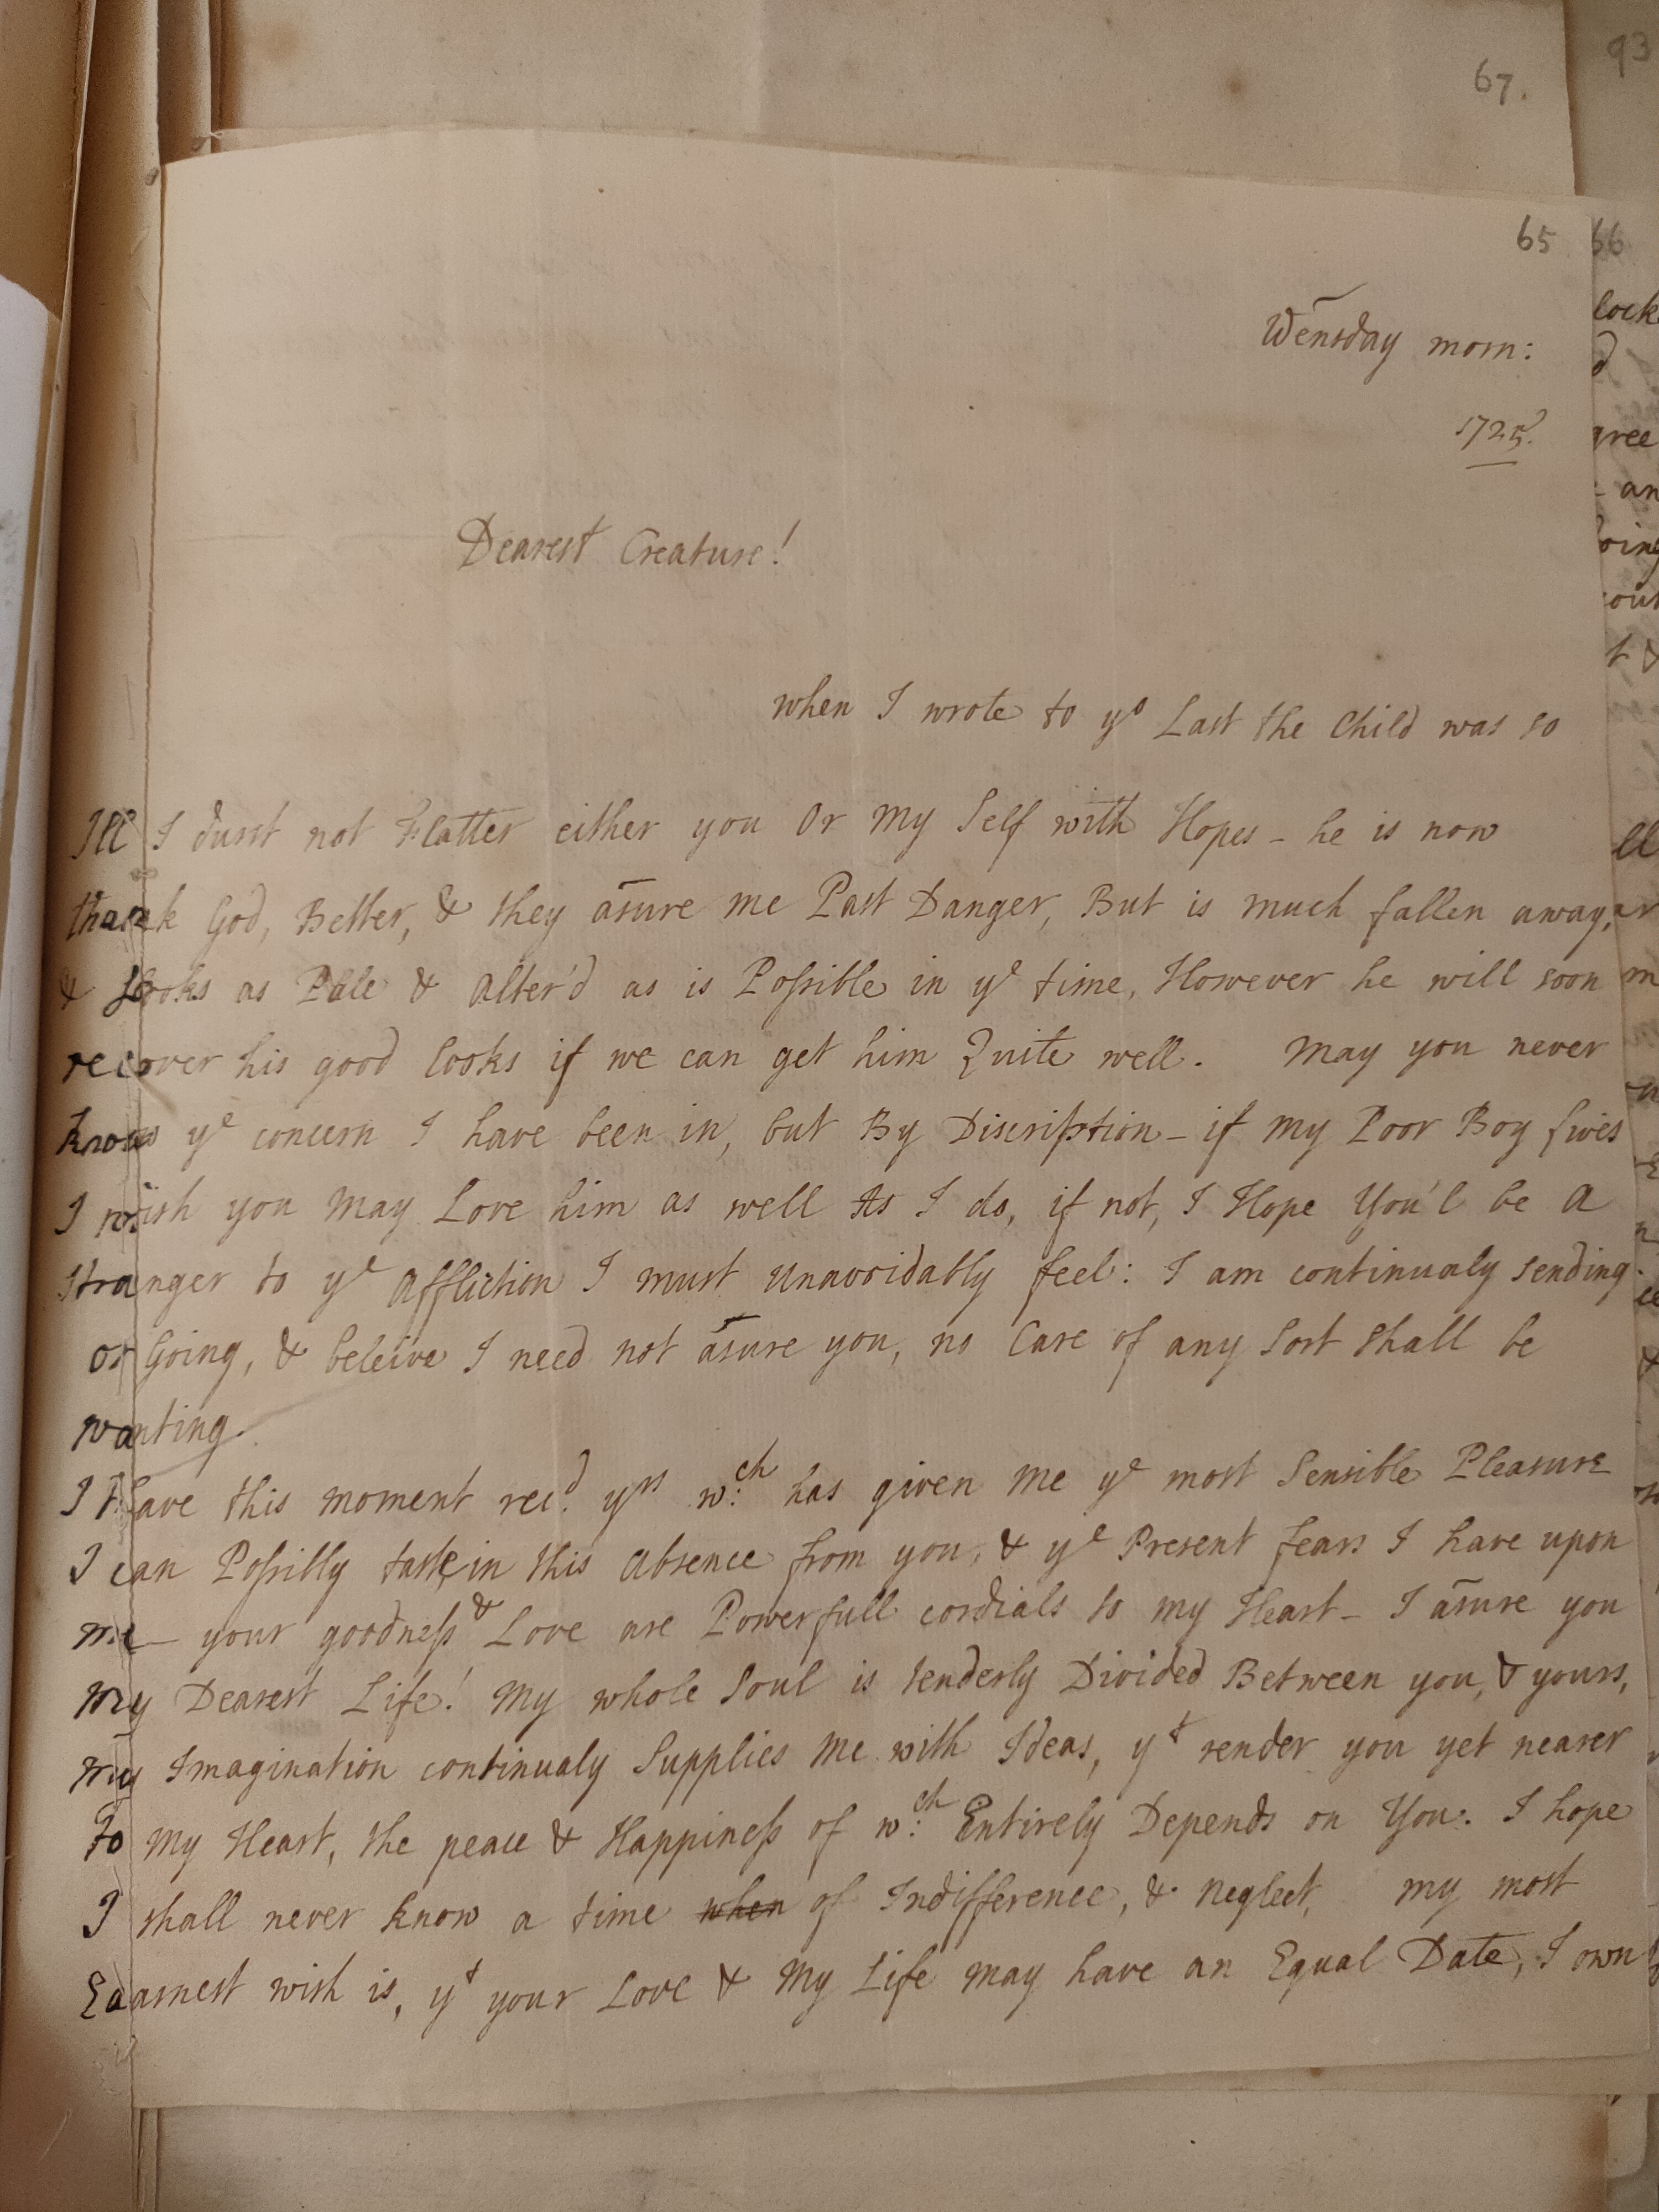 93
67.
65
66
Wensday morn:
1725.
Dearest Creature!
when I wrote to yo Last the Child was so
Ill I durst not Flatter either you Or my Self with Hopes - he is now
thank God, Better, & they asure me Past Danger, But is much fallen away,
& looks as Pale & alter'd as is Possible in ye time, However he will soon
recover his good looks if we can get him Quite well. May you never
know ye concern I have been in, but By Discription - if my Poor Boy lives
I wish you may Love him as well As I do, if not, I Hope You'l be a
stranger to ye affliction I must unavoidably feel: I am continualy sending
or Going, & beleive I need not asure you, no Care of any Sort shall be
wanting.
I Have this moment recd. yrs w:ch has given me ye most Sensible Pleasure
I can Possibly taste in this absence from you, & ye Present fears I have upon
me - your goodness & Love are Powerfull cordials to my Heart - I asure you
my Dearest Life! my whole Soul is tenderly Divided Between you, & yours,
my Imagination continualy Supplies me with Ideas, yt render you yet nearer
To my Heart, the peace & Happiness of w:ch Entirely Depends on You. I hope
I shall never know a time when of Indifference, & neglect, my most
Earnest wish is, yt your Love & my Life may have an Equal Date, I own